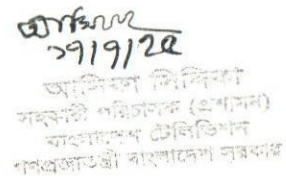 ১৭/৭/২৫
সহকারী পরিচালক (প্রশাসন)
বাংলাদেশ টেলিভিশন
গণপ্রজাতন্ত্রী বাংলাদেশ সরকার